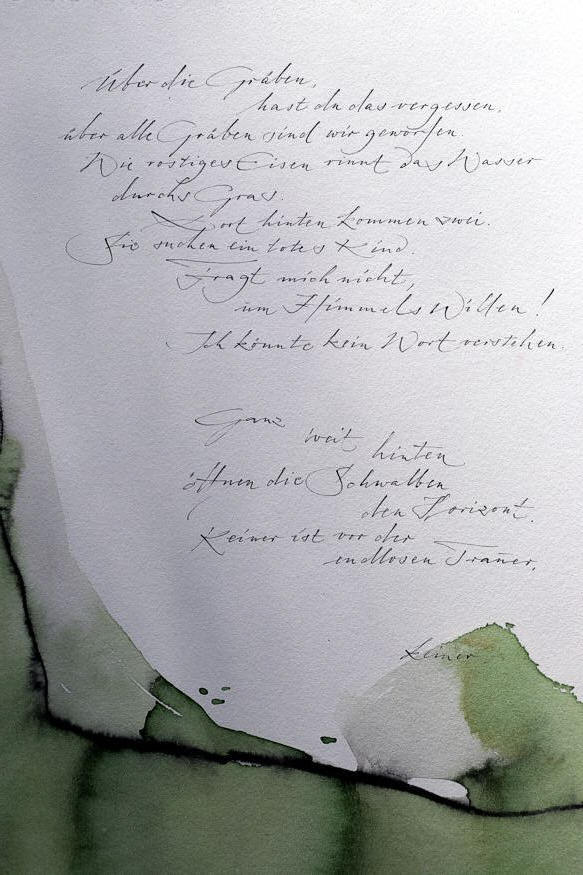 Über die Gräben,
hast du das vergessen,
über alle Gräben sind wir geworfen.
Wie rostiges Eisen rinnt das Wasser
durchs Gras.
Dort hinten kommen zwei.
Sie suchen ein totes Kind.
Fragt mich nicht,
um Himmels Willen!
Ich könnte kein Wort verstehen.
Ganz
weit hinten
öffnen die Schwalben
den Horizont.
Keiner ist vor der
endlosen Trauer,
keiner